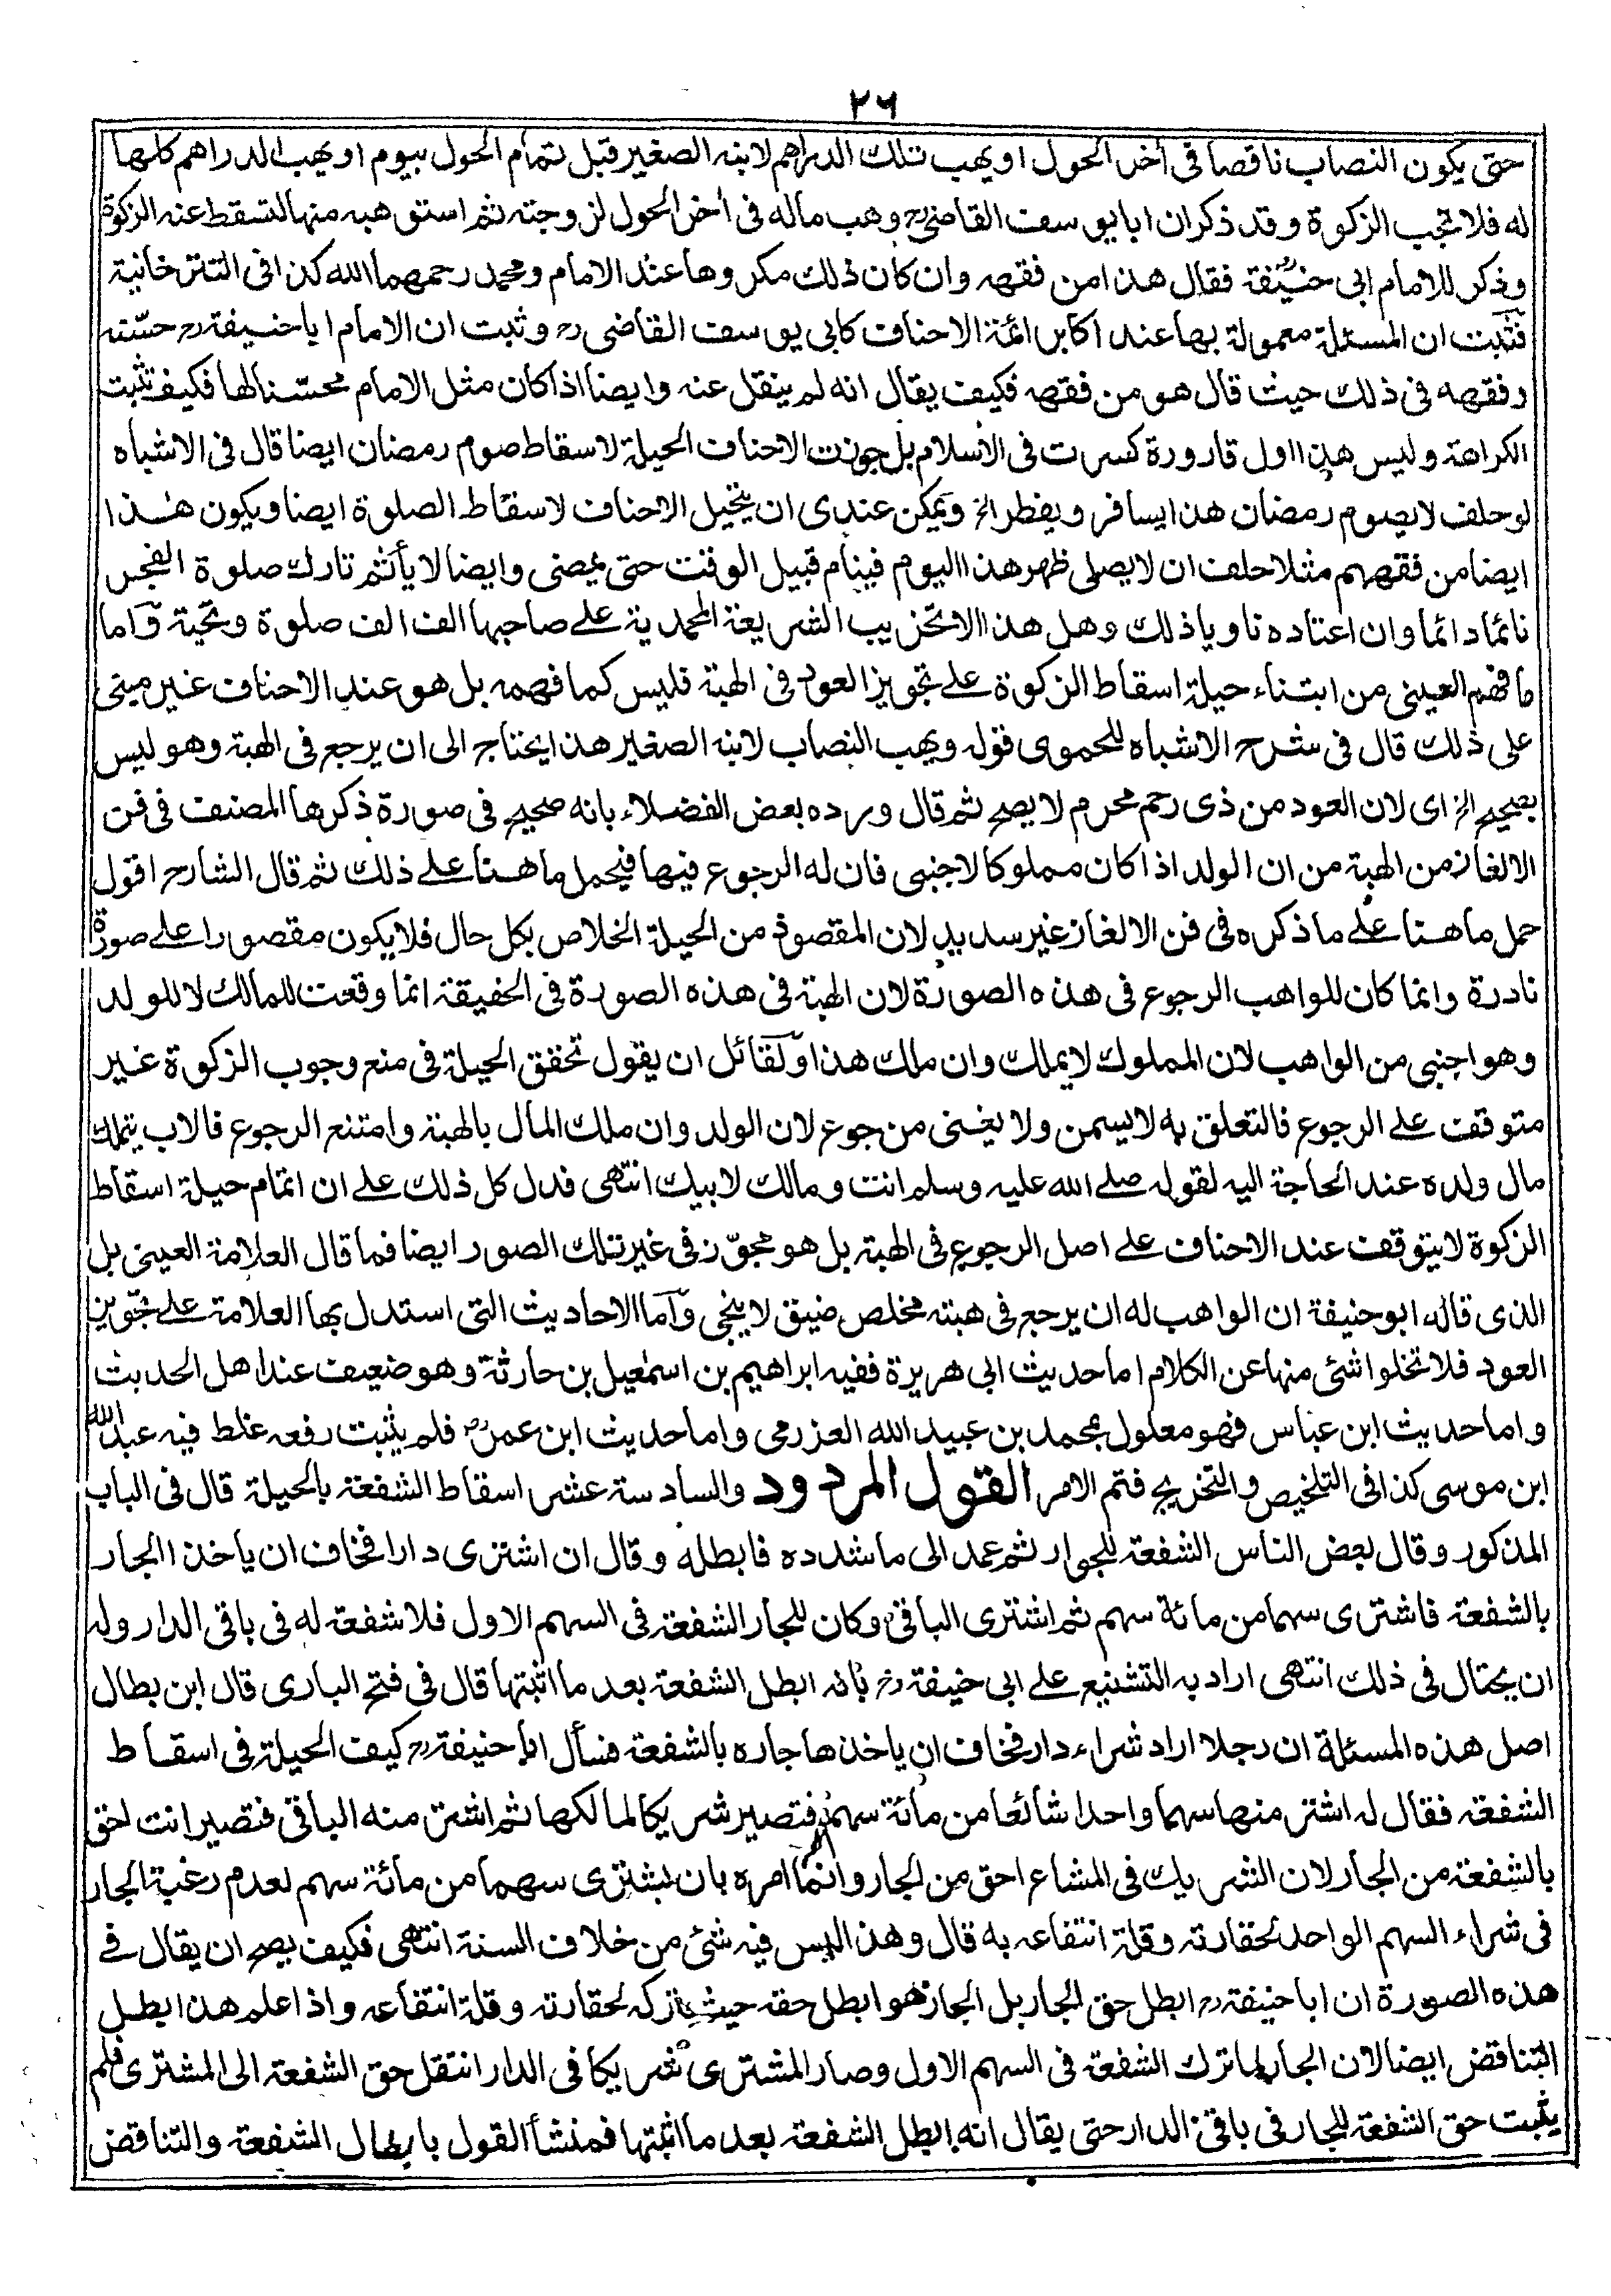 ٢٦
حتى يكون النصاب ناقصا فى أخر الحول او يهب تلك الدراهم لابنه الصغير قبل تمام الحول بيوم او يهب الدراهم كلها
له فلا تجب الزكوة وقد ذكر ان ابا يوسف القاضى رح وهب ماله فى أخر الحول لزوجته ثم استوهبه منها لتسقط عنه الزكوة
وذكر للامام ابى حنيفة رح فقال هذا من فقهه وان كان ذلك مكروها عند الامام ومحمد رحمهما الله كذا فى التتر خانية
فثبت ان المسئلة معمولة بها عند اكابر ائمة الاحناف كابى يوسف القاضى رح وثبت ان الامام ابا حنيفة رح حسّنه
وفقهه فى ذلك حيث قال هو من فقهه فكيف يقال انه لم ينقل عنه وايضا اذا كان مثل الامام محسّنا لها فكيف تثبت
الكراهة وليس هذا اول قارورة كسرت فى الاسلام بل جوزت الاحناف الحيلة لاسقاط صوم رمضان ايضا قال فى الاشباه
لو حلف لا يصوم رمضان هذا يسافر ويفطر الخ ويمكن عندى ان يتحيل الاحناف لاسقاط الصلوة ايضا ويكون هذا
ايضا من فقههم مثلا حلف ان لا يصلى ظهر هذا اليوم فينام قبيل الوقت حتى يمضى وايضا لا يأثم تارك صلوة الفجر
نائما دائما وان اعتاده ناويا ذلك وهل هذا الا تخريب الشريعة المحمدية على صاحبها الف الف صلوة وتحية وآما
ما فهم العينى من ابتناء حيلة اسقاط الزكوة على تجويز العود فى الهبة فليس كما فهمه بل هو عند الاحناف غير مبتنى
على ذلك قال فى شرح الاشباه للحموى قوله ويهب النصاب لابنه الصغير هذا يحتاج الى ان يرجع فى الهبة وهو ليس
بصحيح الخ اى لان العود من ذى رحم محرم لا يصح ثم قال ورده بعض الفضلاء بانه صحيح فى صورة ذكرها المصنف فى فن
الالغاز من الهبة من ان الولد اذا كان مملوكا لاجنبى فان له الرجوع فيها فيحمل ما هنا على ذلك ثم قال الشارح اقول
حمل ما هنا على ما ذكره فى فن الالغاز غير سديد لان المقصود من الحيلة الخلاص بكل حال فلا يكون مقصورا على صورة
نادرة وانما كان للواهب الرجوع فى هذه الصورة لان الهبة فى هذه الصورة فى الحقيقة انما وقعت للمالك لا للولد
وهو اجنبى من الواهب لان المملوك لا يملك وان ملك هذا ولقائل ان يقول تحقق الحيلة فى منع وجوب الزكوة غير
متوقف على الرجوع فالتعلق به لا يسمن ولا يغنى من جوع لان الولد وان ملك المال بالهبة وامتنع الرجوع فالاب يتملك
مال ولده عند الحاجة اليه لقوله صلے الله عليه وسلم انت ومالك لابيك انتهى فدل كل ذلك على ان اتمام حيلة اسقاط
الزكوة لا يتوقف عند الاحناف على اصل الرجوع فى الهبة بل هو مجوّز فى غير تلك الصور ايضا فما قال العلامة العينى بل
الذى قاله ابو حنيفة ان الواهب له ان يرجع فى هبته مخلص ضيق لا ينجى وآما الاحاديث التى استدل بها العلامة على تجويز
العود فلا تخلوا شئ منها عن الكلام اما حديث ابى هريرة ففيه ابراهيم بن اسمعيل بن حارثة وهو ضعيف عند اهل الحديث
واما حديث ابن عباس فهو معلول بمحمد بن عبيد الله العزرمى واما حديث ابن عمر رض فلم يثبت رفعه غلط فيه عبد الله
ابن موسى كذا فى التلخيص والتخريج فتم الامر القول المردود والسادسة عشر اسقاط الشفعة بالحيلة قال فى الباب
المذكور وقال بعض الناس الشفعة للجوار ثم عمد الى ما شدده فابطله وقال ان اشترى دارا فخاف ان ياخذ الجار
بالشفعة فاشترى سهما من مائة سهم ثم اشترى الباقى وكان للجار الشفعة فى السهم الاول فلا شفعة له فى باقى الدار وله
ان يحتال فى ذلك انتهى اراد به التشنيع على ابى حنيفة رح بانه ابطل الشفعة بعد ما اثبتها قال فى فتح البارى قال ابن بطال
اصل هذه المسئلة ان رجلا اراد شراء دار فخاف ان ياخذها جاره بالشفعة فسأل ابا حنيفة رح كيف الحيلة فى اسقاط
الشفعة فقال له اشتر منها سهما واحدا شائعا من مائة سهم فتصير شريكا لمالكها ثم اشتر منه الباقى فتصير انت احق
بالشفعة من الجار لان الشريك فى المشاع احق من الجار وانما امره بان يشترى سهما من مائة سهم لعدم رغبة الجار
فى شراء السهم الواحد لحقارته وقلة انتفاعه به قال وهذا ليس فيه شئ من خلاف السنة انتهى فكيف يصح ان يقال فے
هذه الصورة ان ابا حنيفة رح ابطل حق الجار بل الجار هو ابطل حقه حيث تركه لحقارته وقلة انتفاعه واذا علم هذا بطل
التناقض ايضا لان الجار لما ترك الشفعة فى السهم الاول وصار المشترى شريكا فى الدار انتقل حق الشفعة الى المشترى فلم
يثبت حق الشفعة للجار فى باقى الدار حتى يقال انه ابطل الشفعة بعد ما اثبتها فمنشأ القول بابطال الشفعة والتناقض